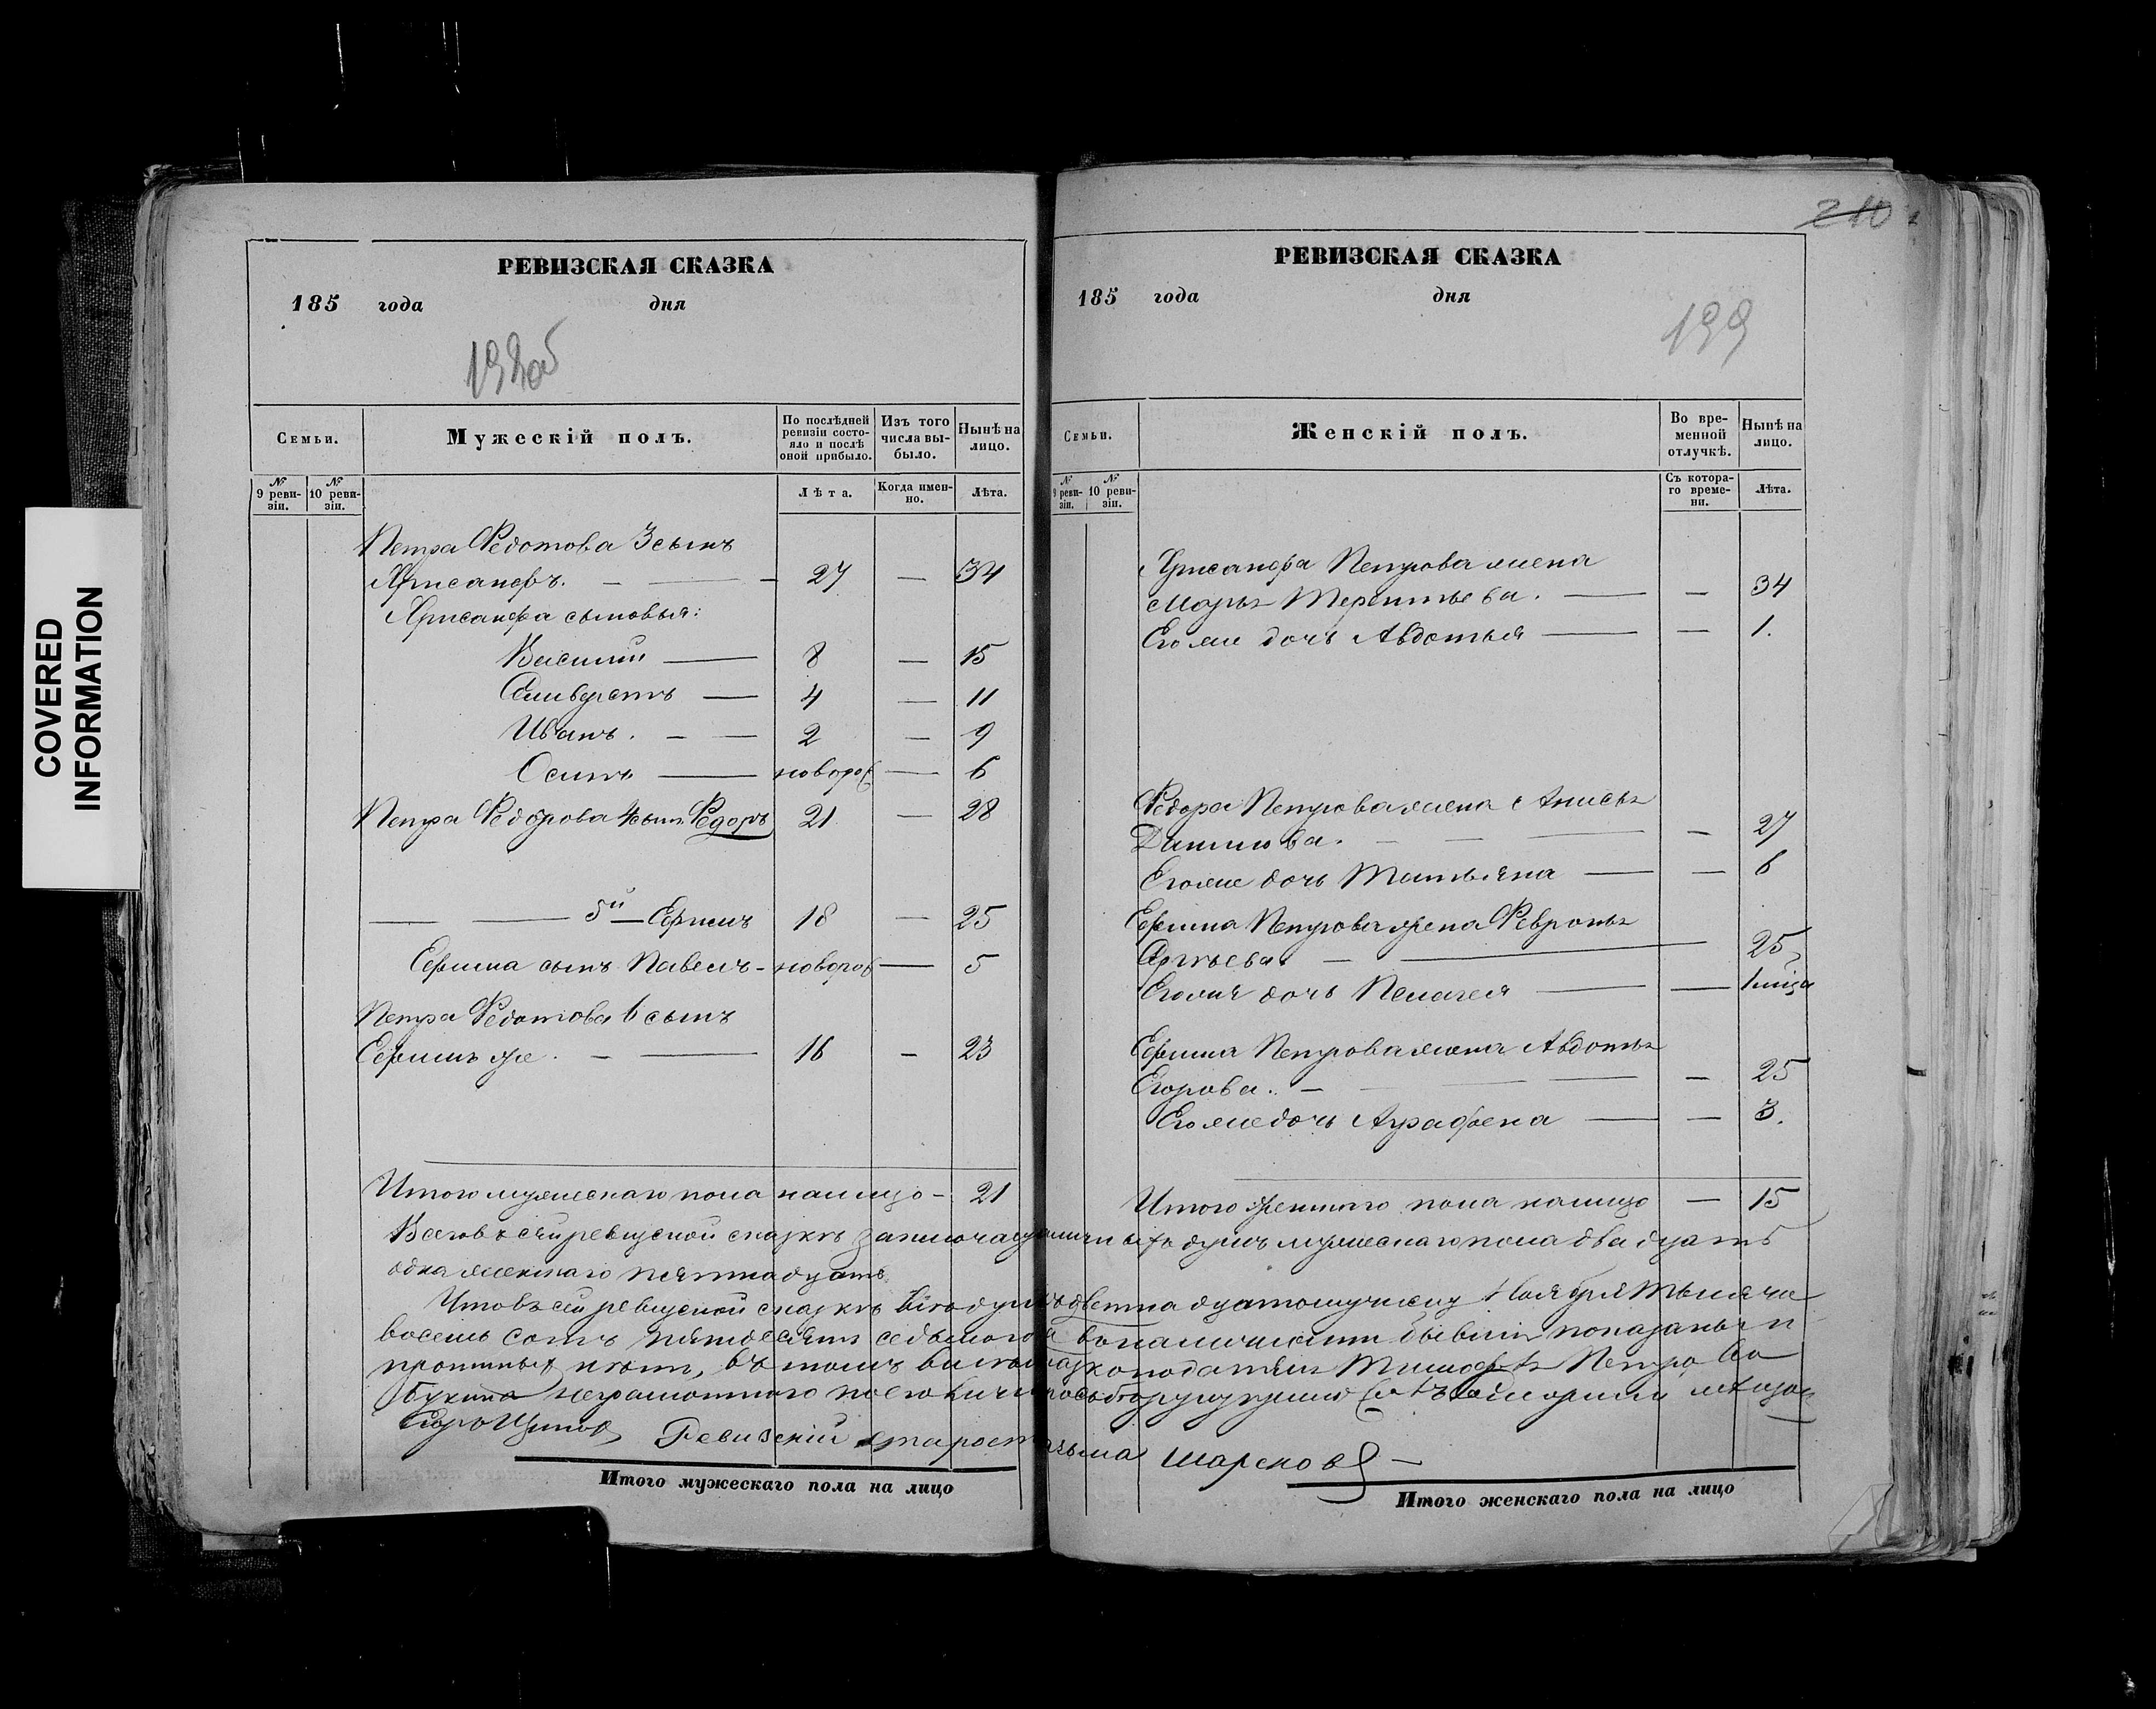 COVERED
INFORMATION
РЕВИЗСКАЯ СКАЗКА
185 года дня
198об
Семьи.
Мужескій полъ.
По послѣдней ревизіи состояло и послѣ оной прибыло.
Изъ того числа выбыло.
Нынѣ на лицо.
№ 9 ревизіи.
№ 10 ревизіи.
Лѣта.
Когда именно.
Лѣта.
Петра Федотова 3 сынъ
Хрисанфъ. — 27 — 34
Хрисанфа сыновья:
Василий — 8 — 15
Селиверстъ — 4 — 11
Иванъ. — 2 — 9
Осипъ — новорож — 6
Петра Федорова 4 сынъ Федоръ 21 — 28
— — 5й — Ефимъ 18 — 25
Ефима сынъ Павелъ - новорож — 5
Петра Федотова 6 сынъ
Ефимъ же. — 16 — 23
Итого мужескаго пола на лицо - 21
РЕВИЗСКАЯ СКАЗКА
210
185 года дня
199
Семьи.
Женскій полъ.
Во временной отлучкѣ.
Нынѣ на лицо.
№ 9 ревизіи.
№ 10 ревизіи.
Съ котораго времени.
Лѣта.
Хрисанфа Петрова жена
Марья Терентьева. — — 34
Его же дочь Авдотья — — 1.
Федора Петрова жена Анисья
Данилова. — — 27
Его же дочь Татьяна — — 6
Ефима Петрова жена Февронья
— 25
Его же дочь Пелагея — — 1
Ефима Петрова жена Авдотья
Егорова. — — 25
Его же дочь Аграфена — — 3.
Итого женскаго пола на лицо — 15
Всего в сей ревизской сказкѣ заключается наличныхъ душъ мужескаго пола двадцать
одна женскаго пятнадцать.
Что въ сей ревизской сказкѣ всѣ души къ двенадцатому числу Ноября тысяча
восемь сотъ пятдесятъ седьмого в наличности бывшія показаны и
прописныхъ нѣтъ, въ томъ
неграмотного по его личной прозьбе руку приложилъ
Ревизский староста Шарсков
Итого мужескаго пола на лицо
Итого женскаго пола на лицо